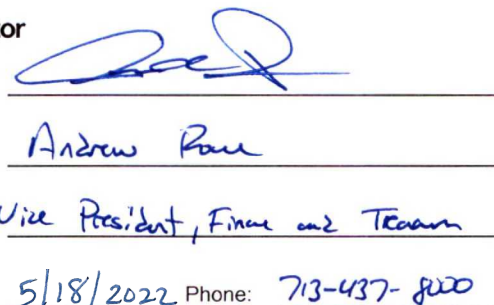 tor
Andrew
Vice President, Finance and Treasury
5/18/2022 Phone: 713-437-8000